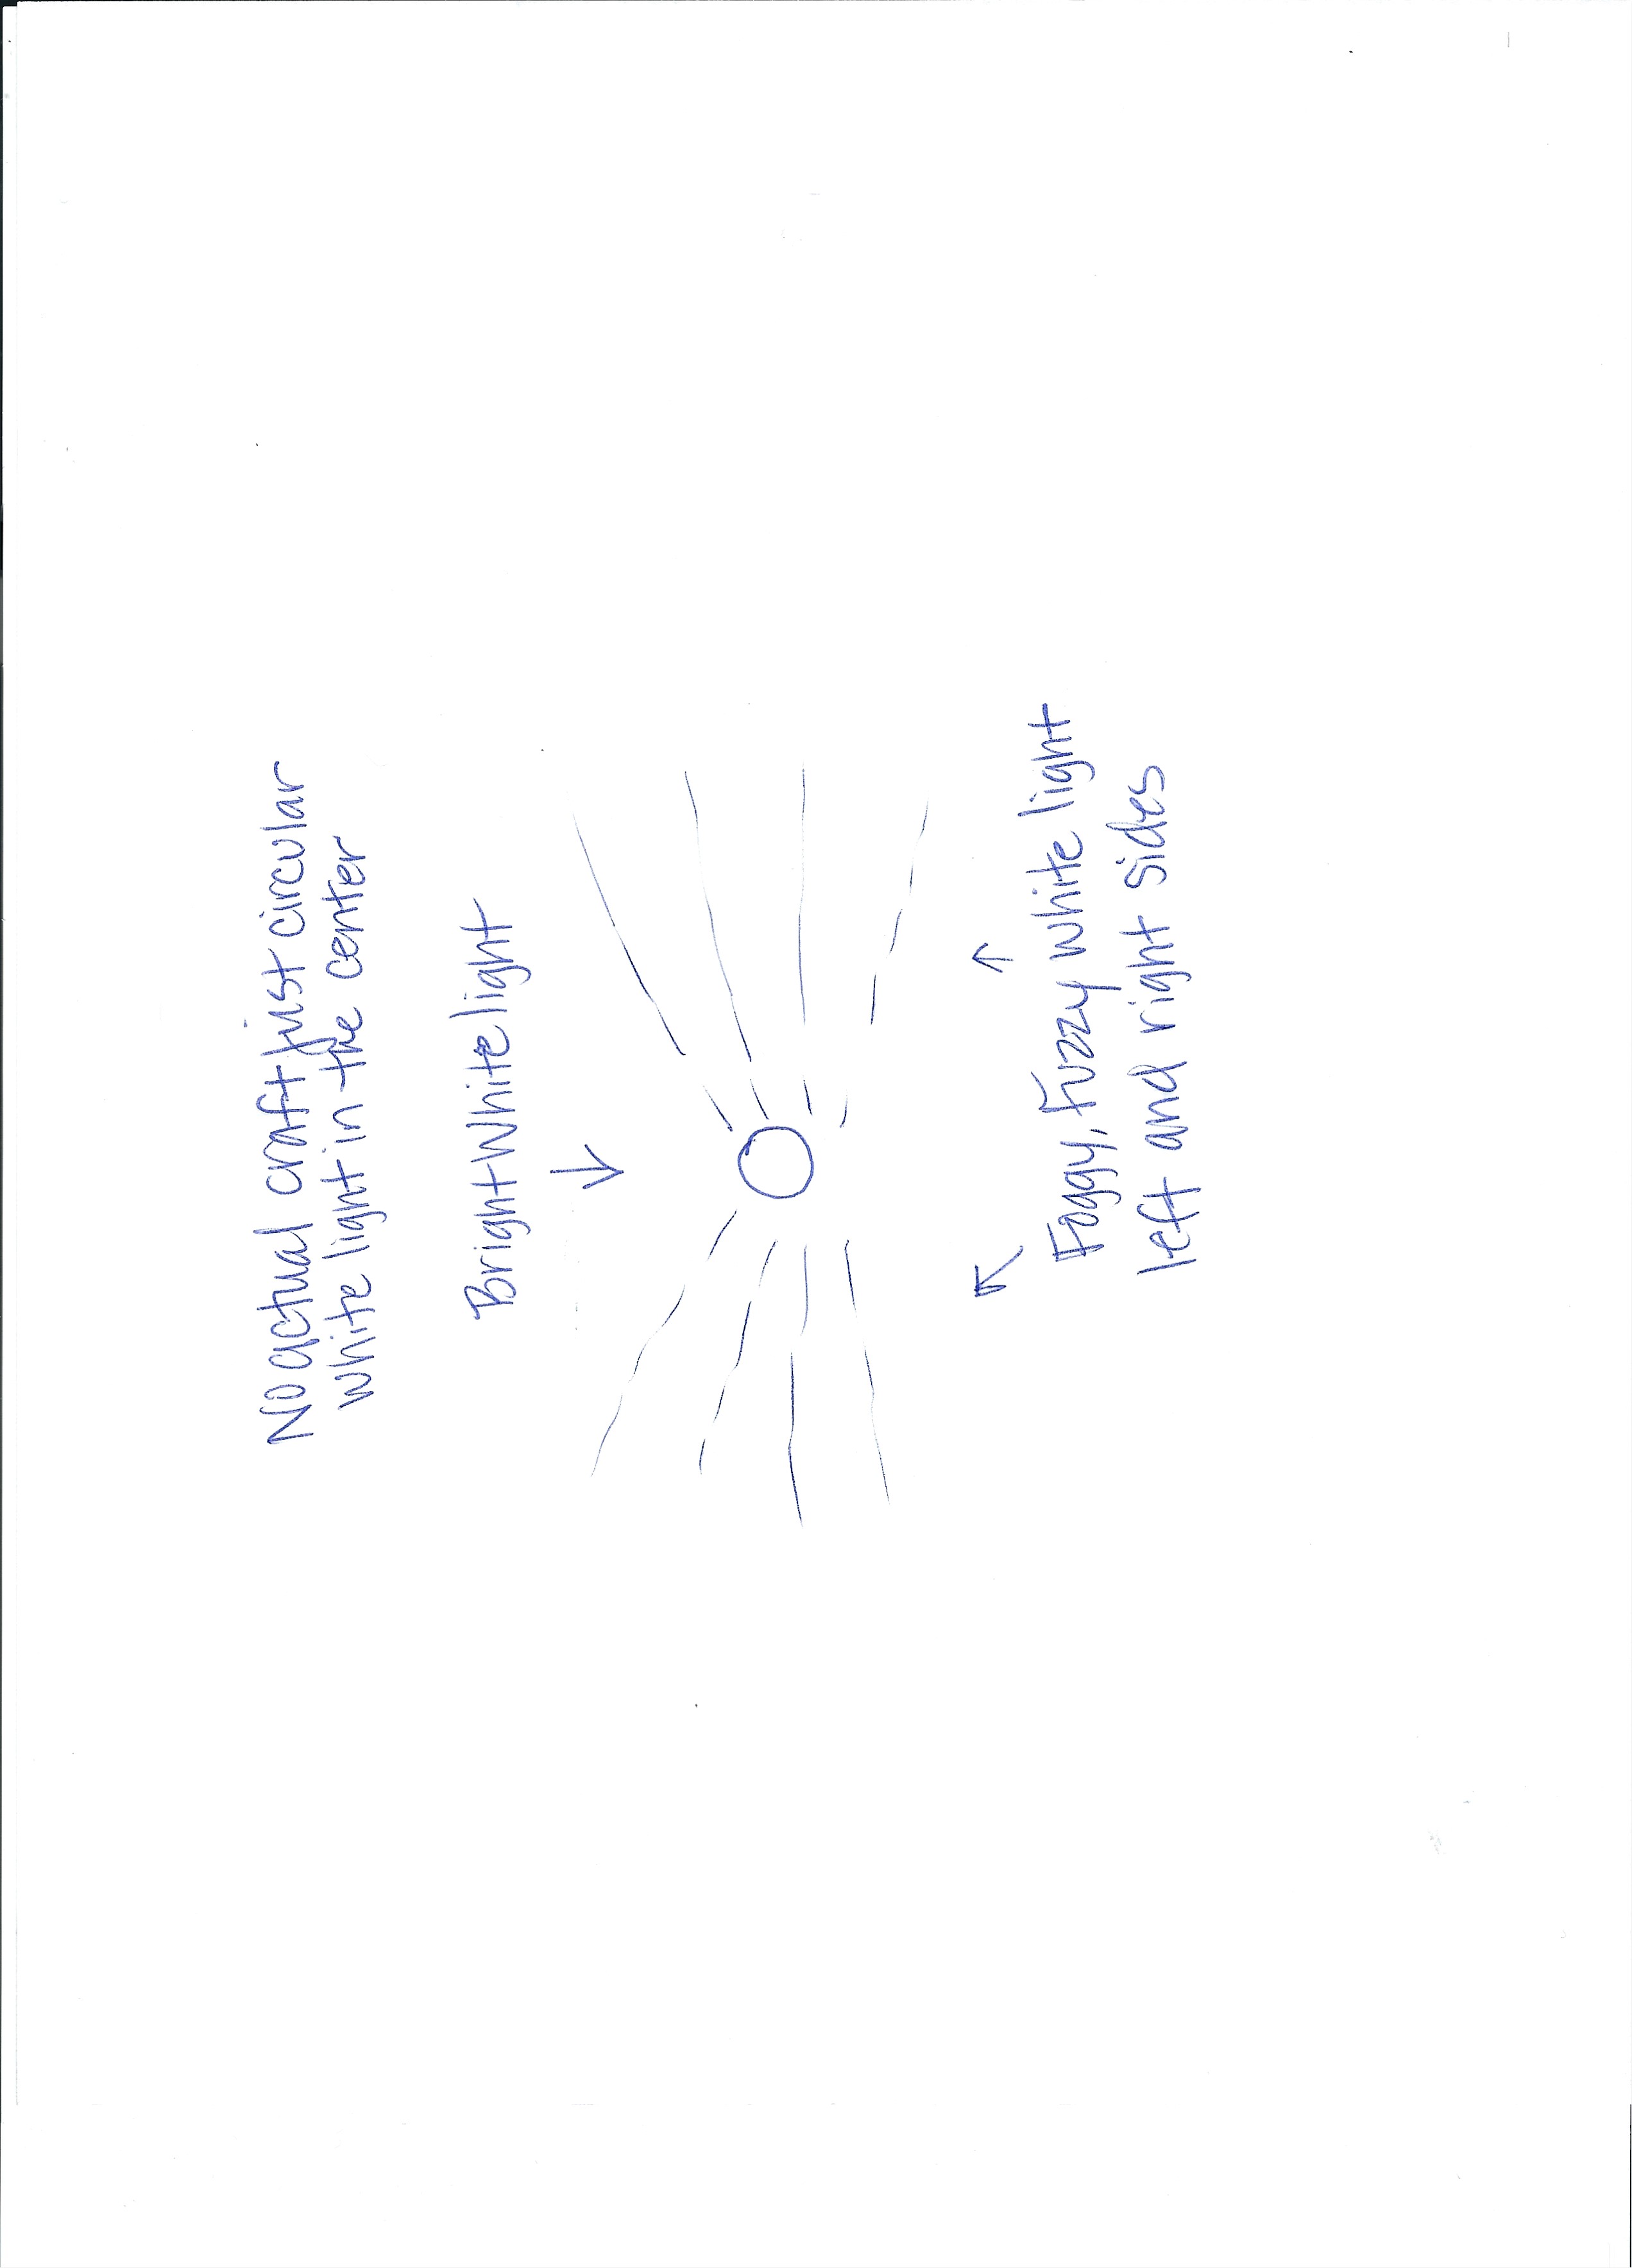 No actual craft just circular
white light in the center
Bright White light
Foggy, Fuzzy white light
left and right sides